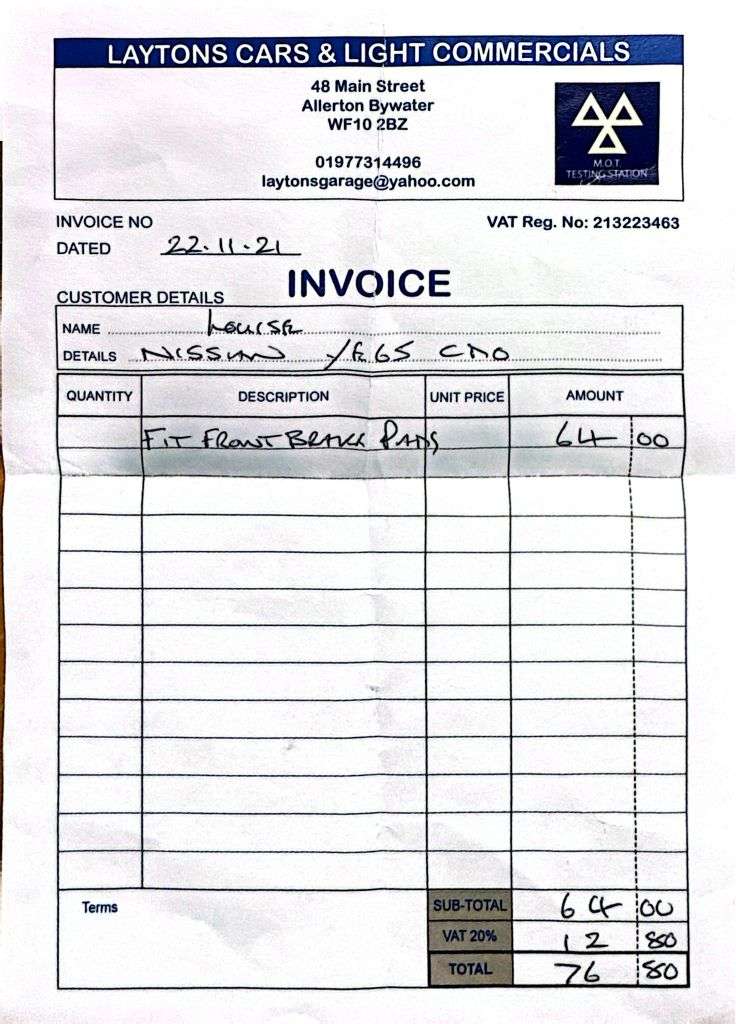 LAYTONS CARS & LIGHT COMMERCIALS
48 Main Street
Allerton Bywater
WF10 2BZ
01977314496
laytonsgarage@yahoo.com
M.O.T.
TESTING STATION
INVOICE NO
VAT Reg. No: 213223463
DATED 22.11.21
INVOICE
CUSTOMER DETAILS
NAME LOUISE
DETAILS NISSAN YE65
QUANTITY DESCRIPTION UNIT PRICE AMOUNT
FIT FRONT BRAKE PADS 64 00
Terms
SUB-TOTAL 64 00
VAT 20% 12 80
TOTAL 76 80